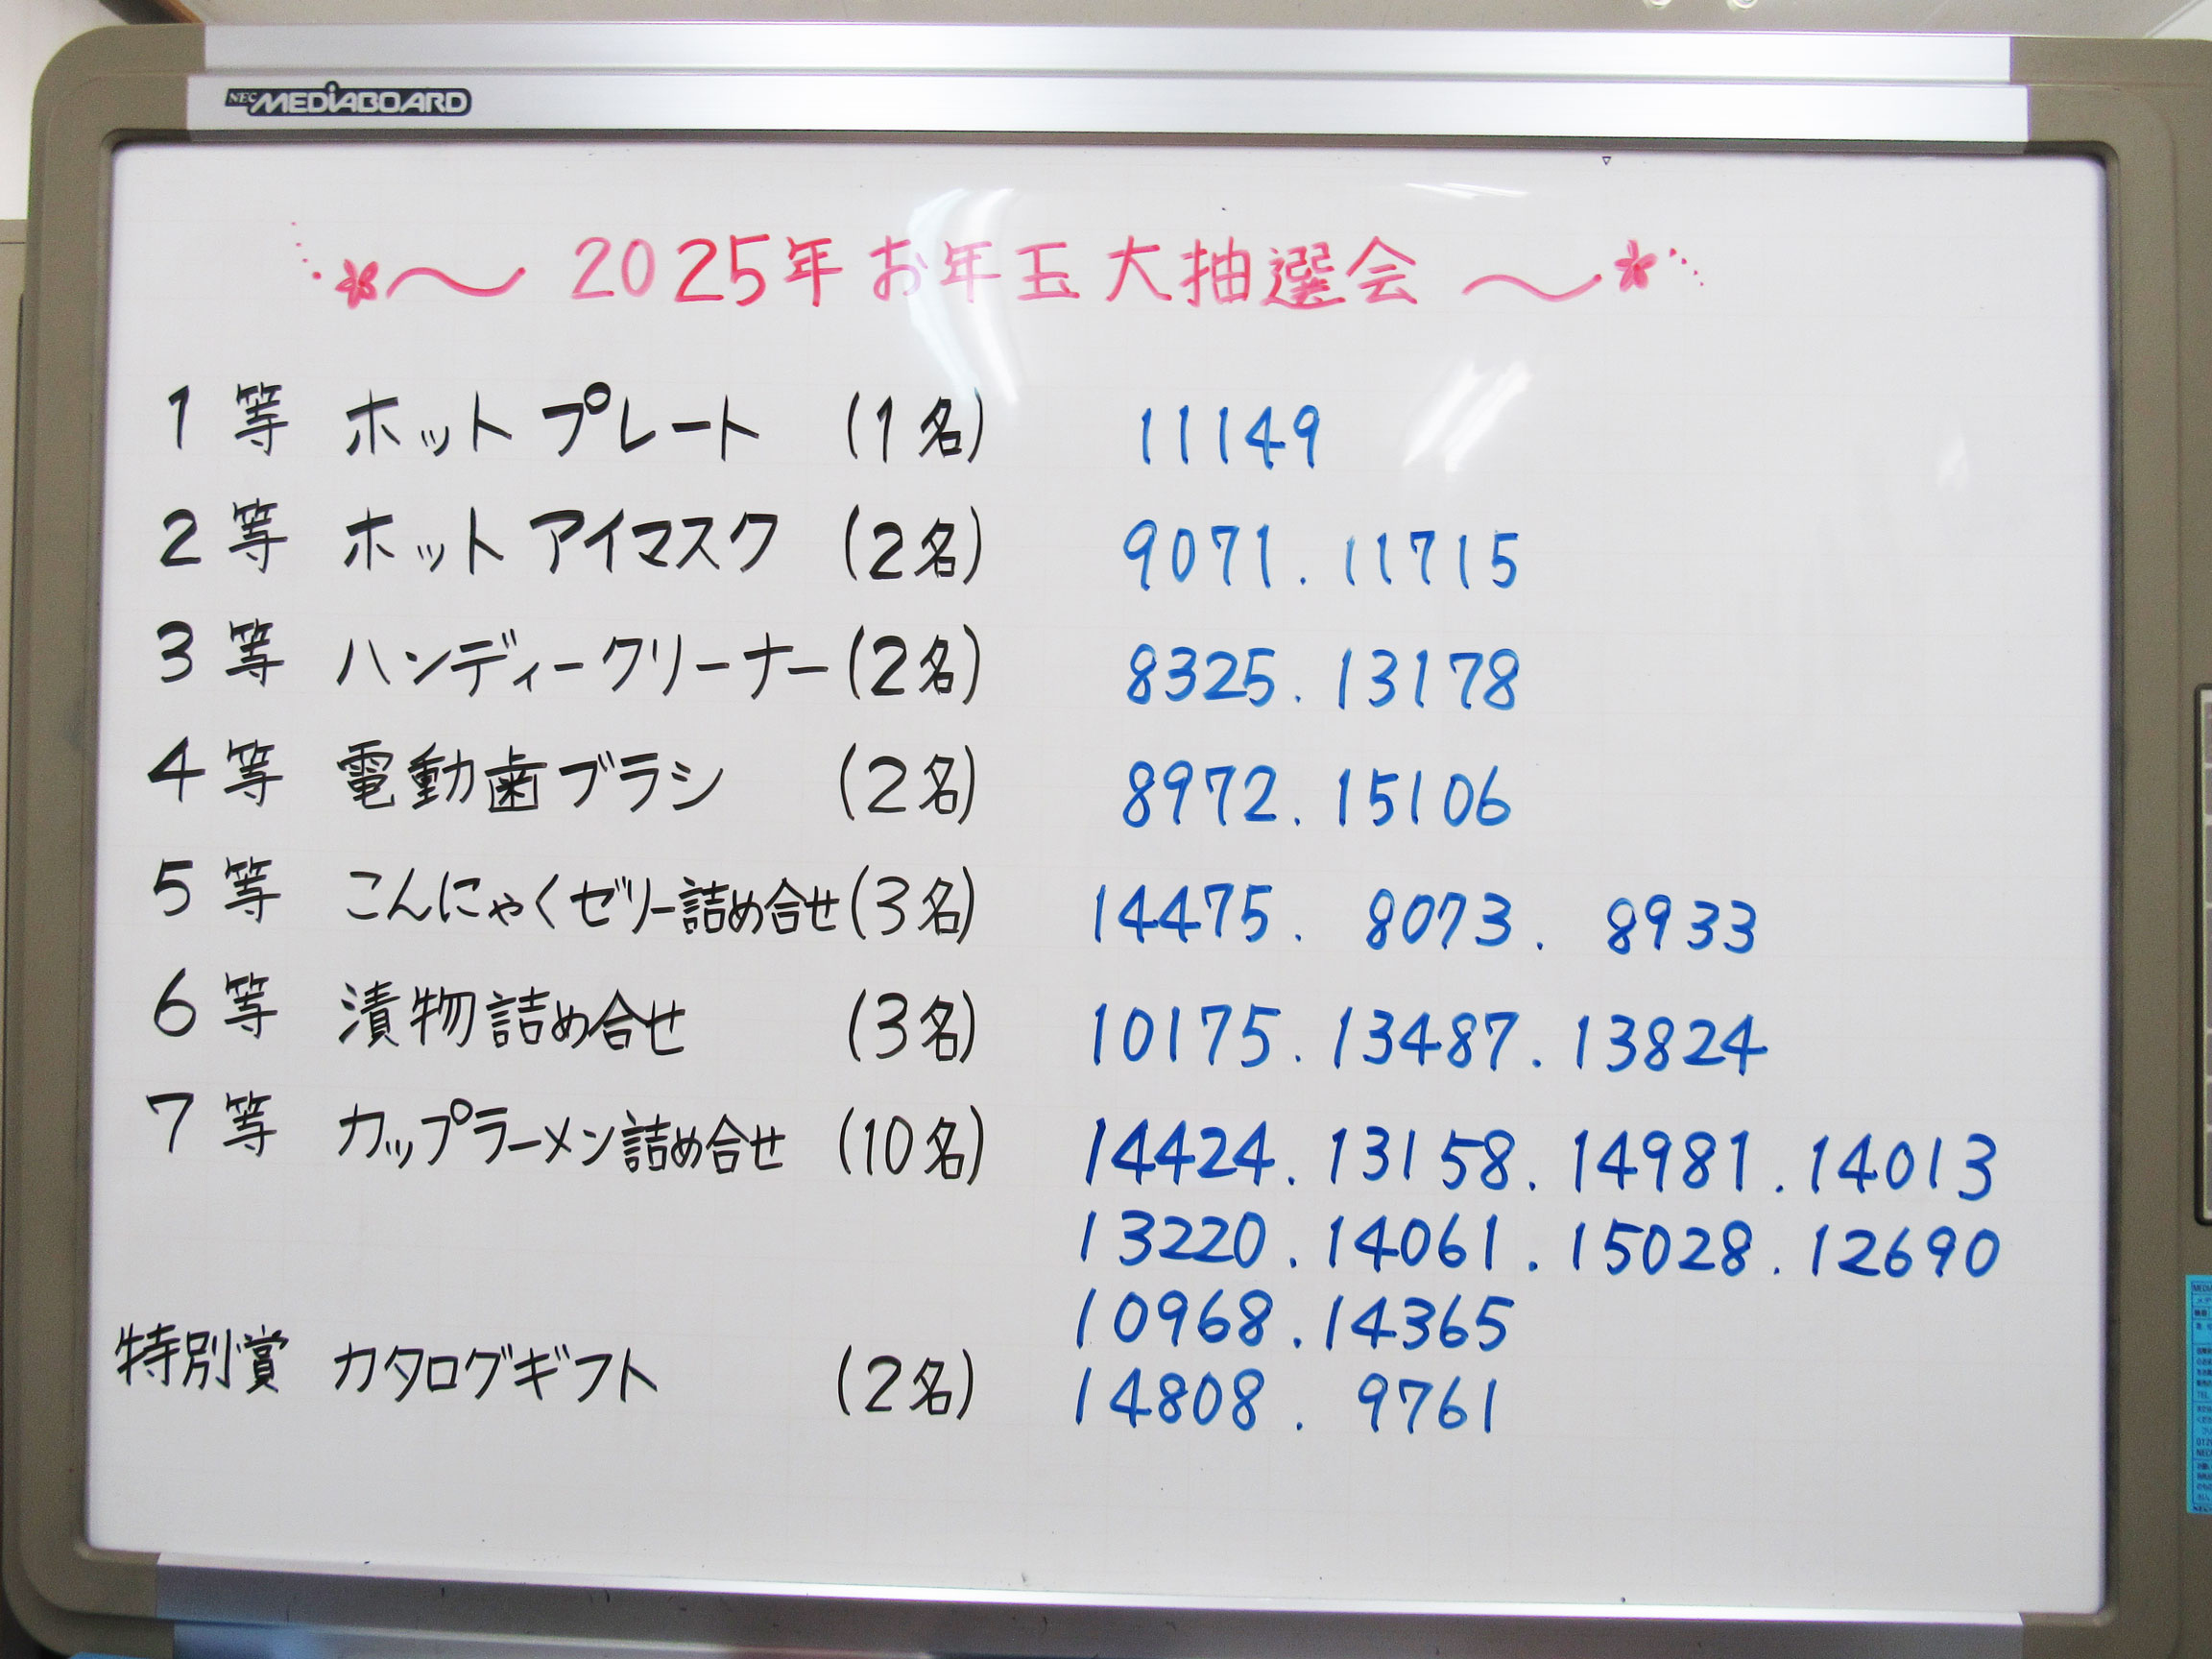 NEC MEDIABOARD
～ 2025年 お年玉 大抽選会 ～
1等 ホットプレート (1名) 11149
2等 ホットアイマスク (2名) 9071. 11715
3等 ハンディークリーナー (2名) 8325. 13178
4等 電動歯ブラシ (2名) 8972. 15106
5等 こんにゃくゼリー詰め合せ (3名) 14475. 8073. 8933
6等 漬物詰め合せ (3名) 10175. 13487. 13824
7等 カップラーメン詰め合せ (10名) 14424. 13158. 14981. 14013
13220. 14061. 15028. 12690
10968. 14365
特別賞 カタログギフト (2名) 14808. 9761